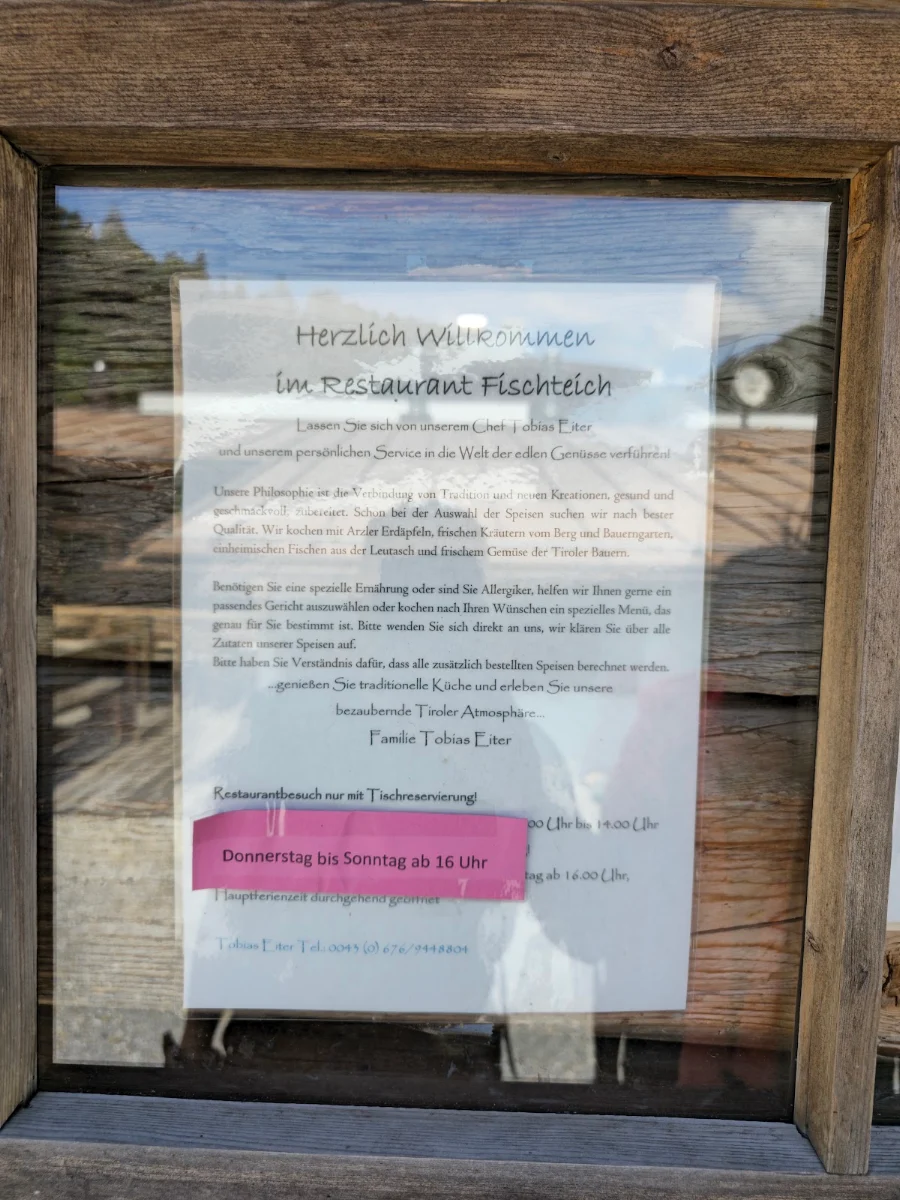 Herzlich Willkommen
im Restaurant Fischteich
Lassen Sie sich von unserem Chef Tobias Eiter
und unserem persönlichen Service in die Welt der edlen Genüsse verführen!
Unsere Philosophie ist die Verbindung von Tradition und neuen Kreationen, gesund und
geschmackvoll, zubereitet. Schon bei der Auswahl der Speisen suchen wir nach bester
Qualität. Wir kochen mit Arzler Erdäpfeln, frischen Kräutern vom Berg und Bauerngarten,
einheimischen Fischen aus der Leutasch und frischem Gemüse der Tiroler Bauern.
Benötigen Sie eine spezielle Ernährung oder sind Sie Allergiker, helfen wir Ihnen gerne ein
passendes Gericht auszuwählen oder kochen nach Ihren Wünschen ein spezielles Menü, das
genau für Sie bestimmt ist. Bitte wenden Sie sich direkt an uns, wir klären Sie über alle
Zutaten unserer Speisen auf.
Bitte haben Sie Verständnis dafür, dass alle zusätzlich bestellten Speisen berechnet werden.
...genießen Sie traditionelle Küche und erleben Sie unsere
bezaubernde Tiroler Atmosphäre...
Familie Tobias Eiter
Restaurantbesuch nur mit Tischreservierung!
00 Uhr bis 14.00 Uhr
Donnerstag bis Sonntag ab 16 Uhr
tag ab 16.00 Uhr,
Hauptferienzeit durchgehend geöffnet
Tobias Eiter Tel.: 0043 (0) 676/9448804